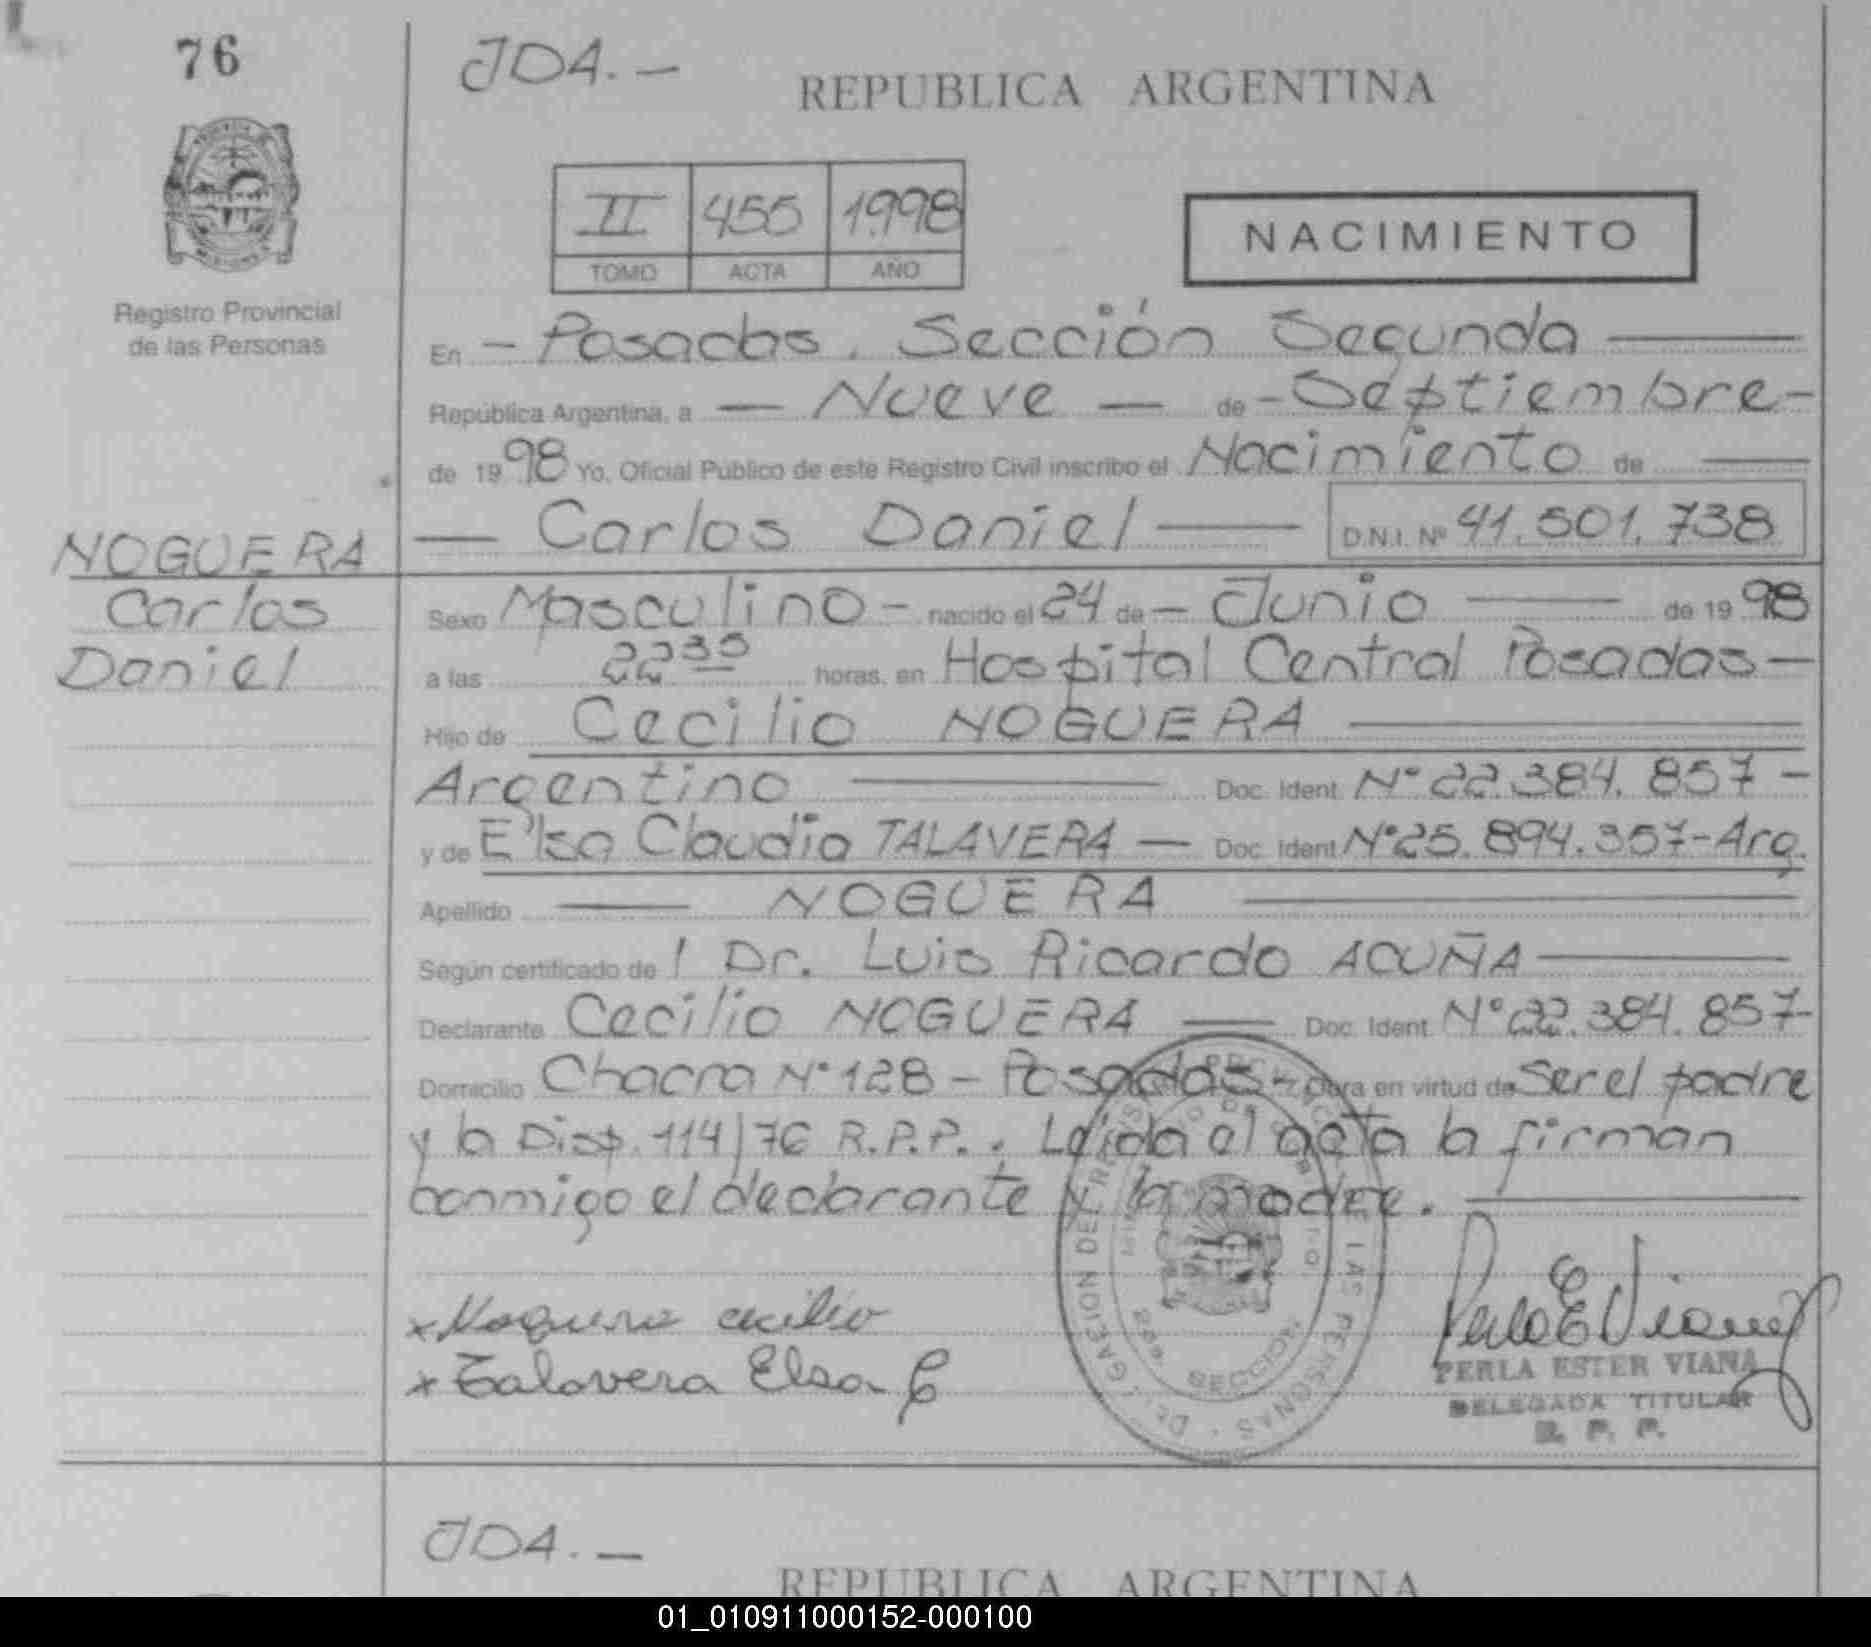 76
JDA.-
REPUBLICA ARGENTINA
II 455 1998
TOMO ACTA AÑO
NACIMIENTO
Registro Provincial
de las Personas
En - Posadas. Sección Segunda
República Argentina, a - Nueve - de - Septiembre -
de 1998 Yo, Oficial Público de este Registro Civil inscribo el Nacimiento de
- Carlos Daniel - D.N.I. Nº 41.501.738
NOGUERA
Carlos
Daniel
Sexo Masculino - nacido el 24 de - Junio - de 1998
a las 22 35 horas, en Hospital Central Posadas -
Hijo de Cecilio NOGUERA
Argentino - Doc. Ident. Nº 22.384.857 -
y de Elsa Claudia TALAVERA - Doc. Ident. Nº 25.894.357 - Arg.
Apellido - NOGUERA
Según certificado de l Dr. Luis Ricardo ACUÑA
Declarante Cecilio NOGUERA - Doc. Ident. Nº 22.384.857 -
Domicilio Chacra Nº 128 - Posadas - Obra en virtud de Ser el padre
y la Disp. 114/76 R.P.P.. Leída el acta la firman
conmigo el declarante y la madre.
x Noguera cecilio
x Talavera Elsa C
Perla E Viana
PERLA ESTER VIANA
DELEGADA TITULAR
R. P. P.
DELEGACION DEL REGISTRO
DE LAS PERSONAS
SECCION
JDA.-
REPUBLICA ARGENTINA
01_010911000152-000100